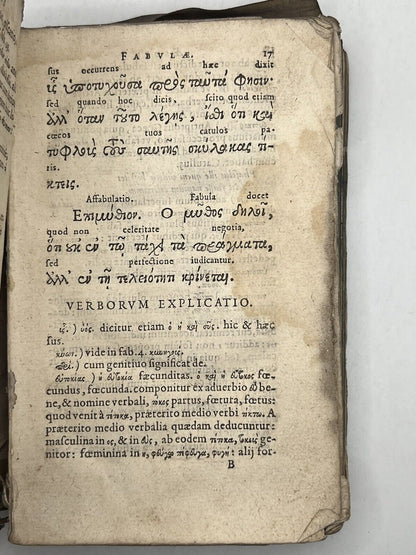 FABVLÆ. 17
sus occurrens ad hæc dixit
ὗς ὑποτυχοῦσα πρὸς ταῦτά φησιν·
sed quando hoc dicis, scito quod etiam
ἀλλ' ὅταν τοῦτο λέγης, ἴσθι ὅτι καὶ
cœcos tuos catulos pa-
τυφλοὺς τοὺς σαυτῆς σκύλακας τί-
ris.
κτεις.
Affabulatio. Fabula docet
Ἐπιμύθιον. Ὁ μῦθος δηλοῖ,
quod non celeritate negotia,
ὅτι οὐκ ἐν τῷ τάχει τὰ πράγματα,
sed perfectione iudicantur.
ἀλλ' ἐν τῇ τελειότητι κρίνεται.
VERBORVM EXPLICATIO.
ὗς.) ὑός. dicitur etiam ὁ ἡ καὶ σῦς. hic & hæc
sus.
κύων.) vide in fab. 4.
cum genitiuo significat de.
εὐτοκίας) ἡ εὐτοκία fœcunditas. ὁ καὶ ἡ εὔτοκος fœ-
cundus, fœcunda. componitur ex aduerbio εὖ be-
ne, & nomine verbali, τόκος partus, fœtura, fœtus:
quod venit à τέτοκα, præterito medio verbi τίκτω. A
præterito medio verbalia quædam deducuntur:
masculina in ος, & in εὺς, ab eodem τέτοκα, τοκεὺς ge-
nitor: fœminina in η, φεύγω πέφευγα, φυγή: alij for-
B